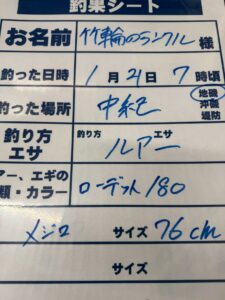 釣果シート
お名前 竹輪のランクル 様
釣った日時 1月21日 7時頃
釣った場所 中紀 地磯 沖磯 堤防
釣り方 エサ 釣り方 ルアー エサ
アー、エギの
類・カラー ローデット 180
メジロ サイズ 76cm
サイズ